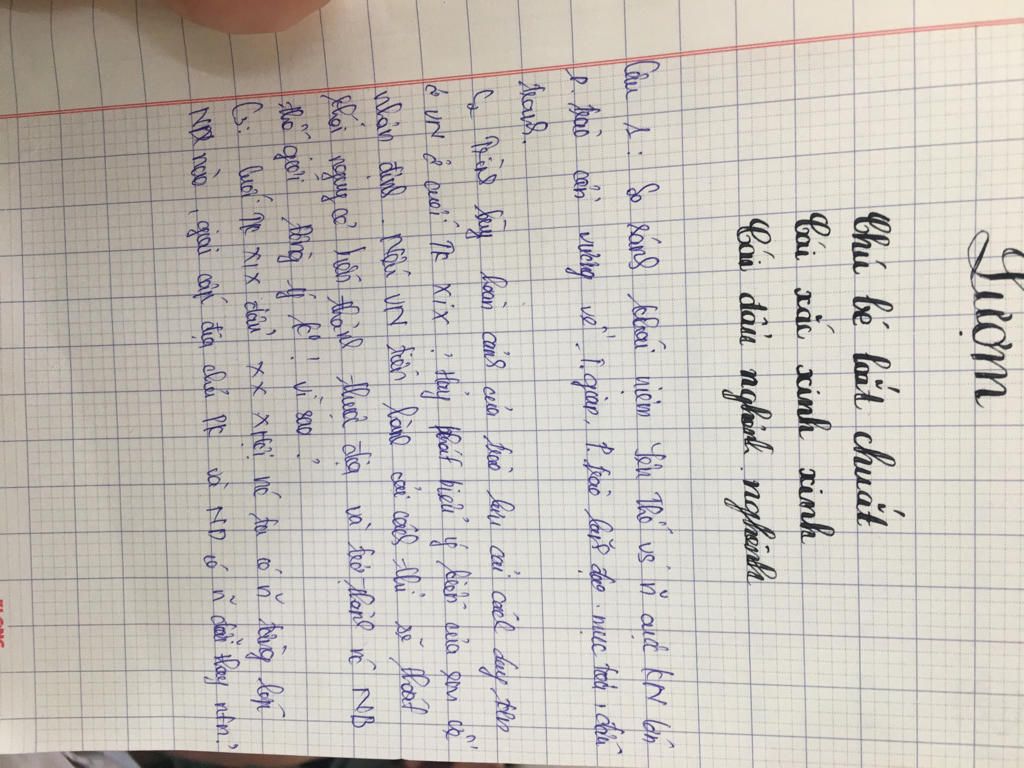 Lượm
Chú bé loắt choắt
Cái xắc xinh xinh
Cái đầu nghênh nghênh
Câu 1: So sánh khởi nghĩa Yên Thế vs ñ cuộc KN lớn
P. trào cần vương về: T. gian, P. trào lãnh đạo, mục tiêu,
C2 Trình bày hoàn cảnh của trào lưu cải cách duy tân
ở VN ở cuối TK XIX, Hãy phát biểu ý kiến của em về
nhận định. Nếu VN tiến hành cải cách thì sẽ thoát
khỏi nguy cơ biến thành thuộc địa và trở thành nc NB
thế giới đồng ý k? Vì sao?
C3: Cuối TK XIX đầu XX XHội nc ta có ñ tầng lớp
ND nào, giai cấp địa chủ PK và ND có ñ đổi thay ntn?